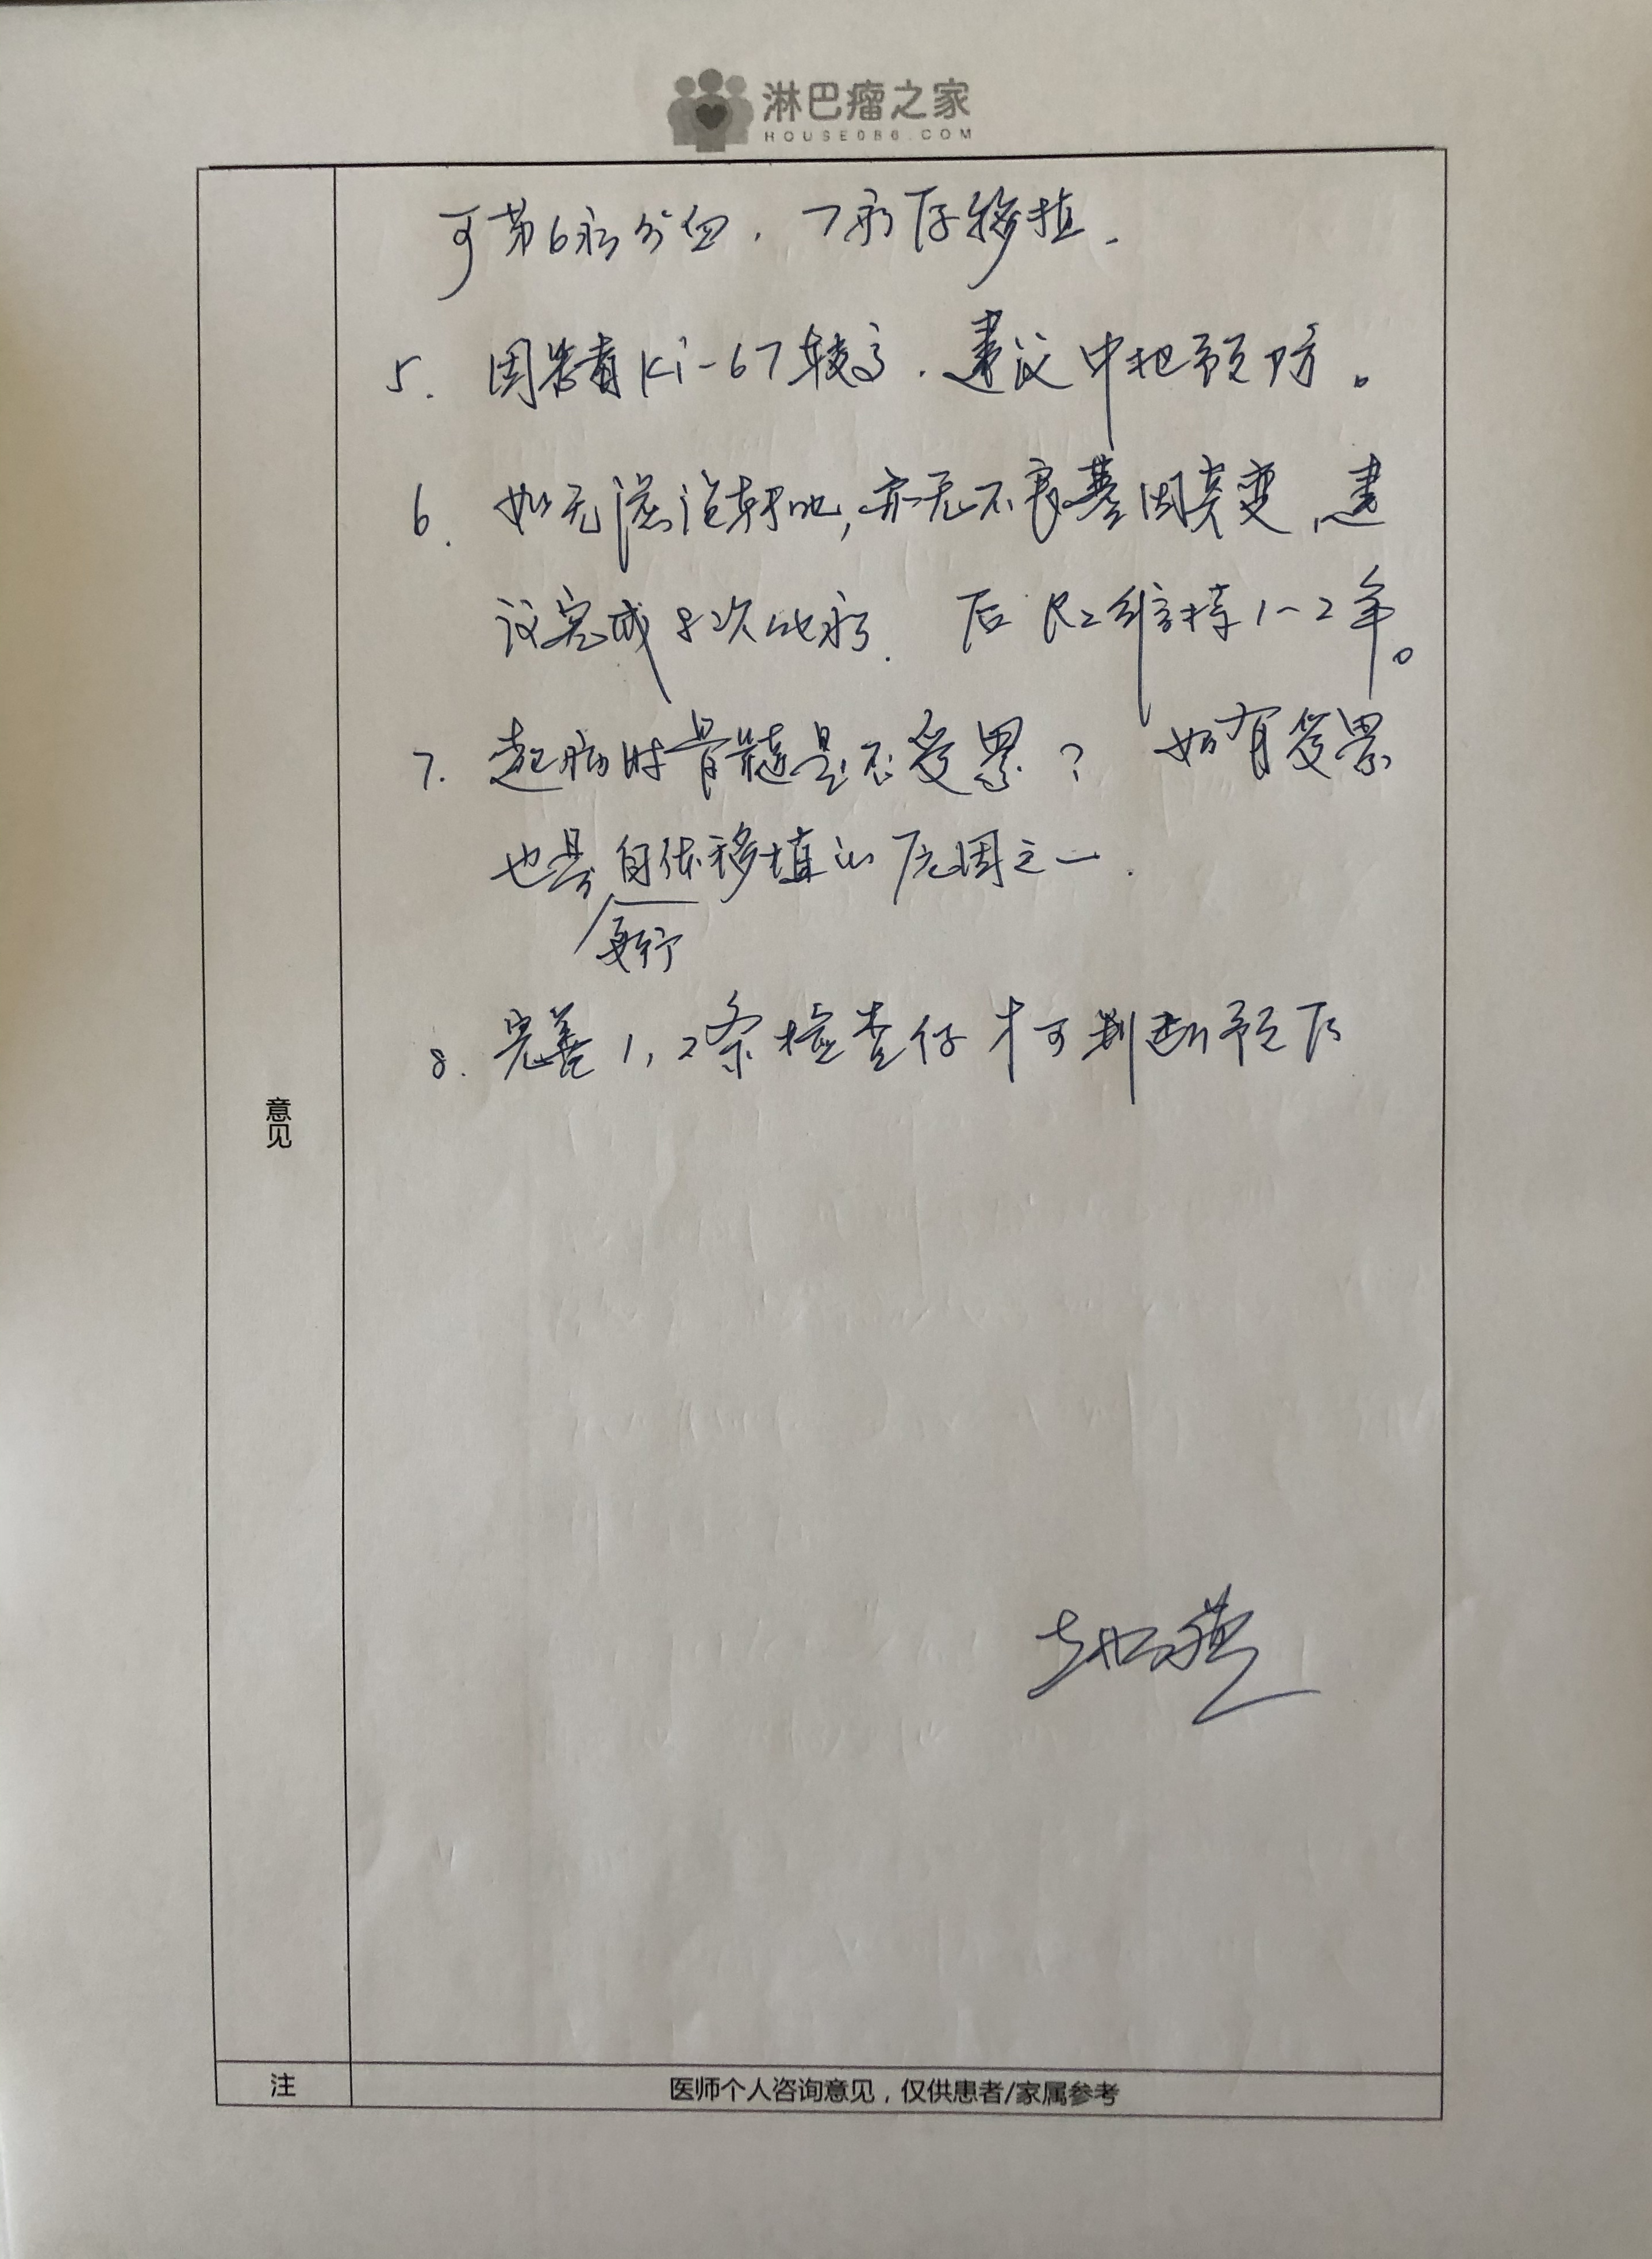 淋巴瘤之家
HOUSE086.COM
可第6疗分血，7疗后移植.
5. 因患者Ki-67较高，建议中枢预防。
6. 如无滤泡转化，亦无不良基因突变，建
议完成8次化疗. 后R2维持1-2年。
7. 起病时骨髓是否受累？ 如有受累
也是自体移植的原因之一.
要行
8. 完善1,2条检查后才可判断预后
意见
注
医师个人咨询意见，仅供患者/家属参考